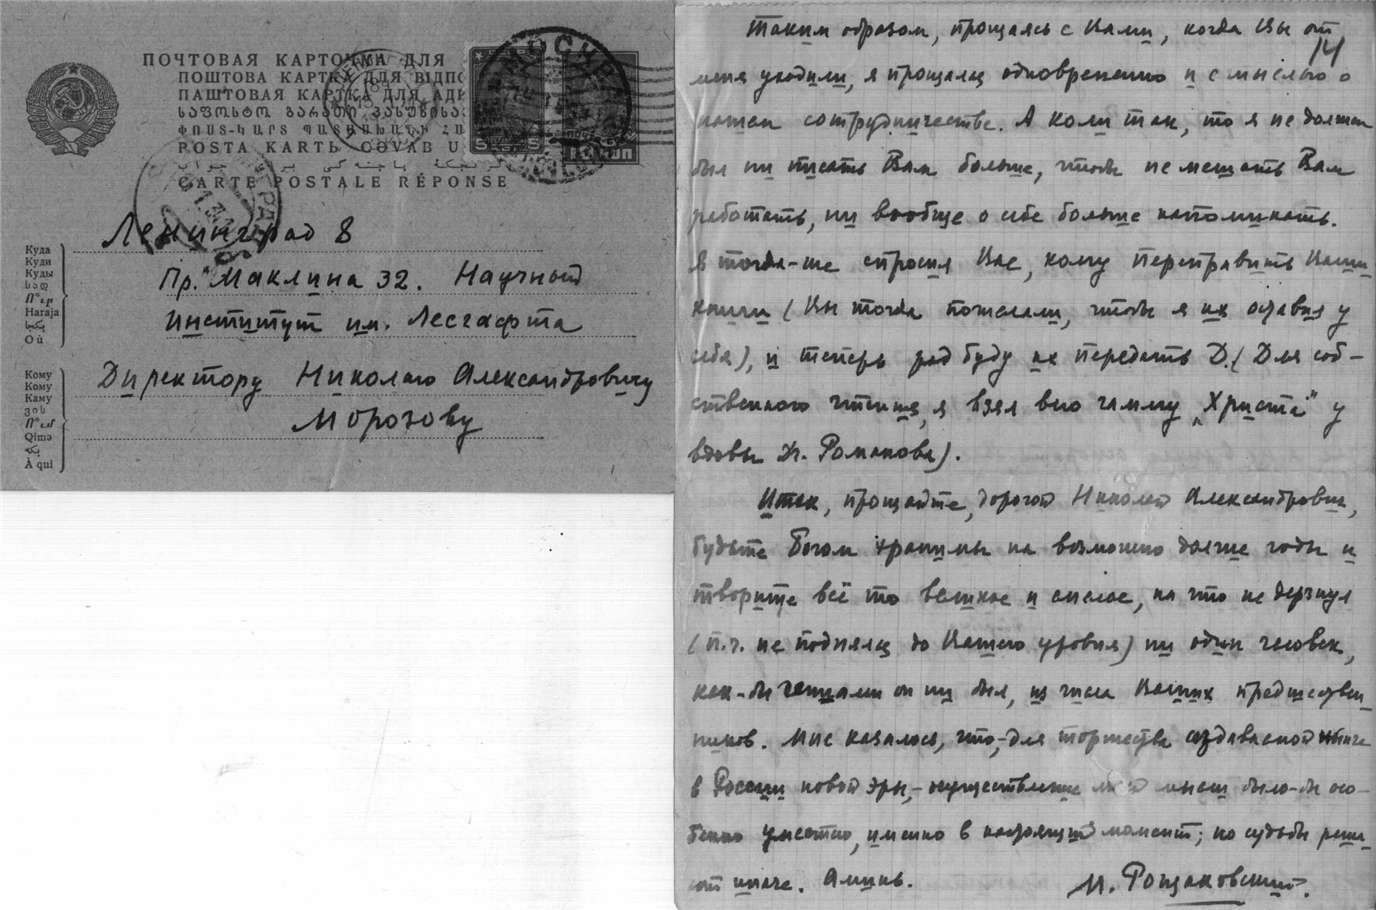 ПОЧТОВАЯ КАРТОЧКА ДЛЯ
ПОШТОВА КАРТКА ДЛЯ ВІДПО
ПАШТОВАЯ КАРТКА ДЛЯ АД
ՓՈՍՏ-ԿԱՐՏ ՊԱՏԱՍԽԱՆԻ ՀԱ
POSTA KARTЬ COVAB U
CARTE POSTALE RÉPONSE
МОСКВА
Куда
Куди
Куды
Haraja
Où
Ленинград 8
Пр. Маклина 32. Научный
Институт им. Лесгафта
Кому
Кому
Каму
Qimə
À qui
Директору Николаю Александровичу
Морозову
14
Таким образом, прощаясь с Вами, когда Вы от
меня уходили, я прощался одновременно и с мыслью о
нашем сотрудничестве. А коли так, то я не должен
был ни писать Вам больше, чтобы не мешать Вам
работать, ни вообще о себе больше напоминать.
Я тогда-же спросил Вас, кому переправить Ваши
книги (Вы тогда пожелали, чтобы я их оставил у
себя), и теперь рад буду их передать Д. (Для соб-
ственного чтения, я взял всю гамму „Христа" у
вдовы Дг. Романова).
Итак, прощайте, дорогой Николай Александрович,
будьте Богом хранимы на возможно долгие годы и
творите всё то великое и смелое, на что не дерзнул
(п.ч. не поднялся до Вашего уровня) ни один человек,
как-бы гениален он ни был, из числа Ваших предшествен-
ников. Мне казалось, что, для торжества создаваемой ныне
в России новой эры, осуществление моей мысли было-бы осо-
бенно уместно, именно в настоящий момент; но судьбы реши-
ли иначе. Аминь.
М. Рощаковский.